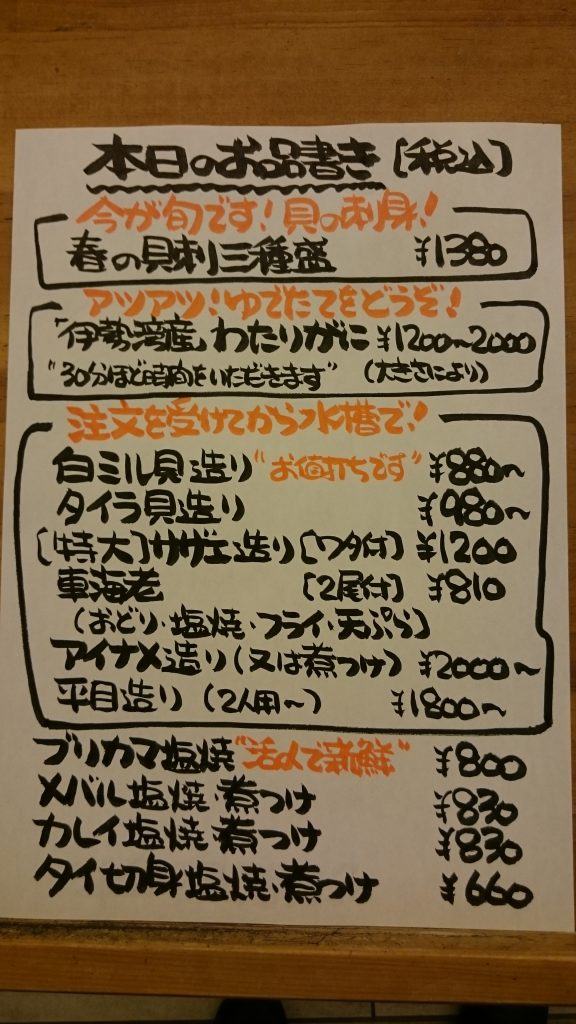 本日のお品書き [税込]
今が旬です！貝の刺身！
春の貝刺三種盛 ¥1380
アツアツ！ゆでたてをどうぞ！
"伊勢湾産"わたりがに ¥1200～2000
"30分ほど時間をいただきます" (大きさにより)
注文を受けてから水槽で！
白ミル貝造り "お値打ちです" ¥880～
タイラ貝造り ¥980～
[特大]サザエ造り [ワタ付] ¥1200
車海老 [2尾付] ¥810
(おどり・塩焼・フライ・天ぷら]
アイナメ造り (又は煮つけ) ¥2000～
平目造り (2人用～) ¥1800～
ブリカマ塩焼 "活〆で新鮮" ¥800
メバル塩焼・煮つけ ¥830
カレイ塩焼・煮つけ ¥830
タイ切身塩焼・煮つけ ¥660